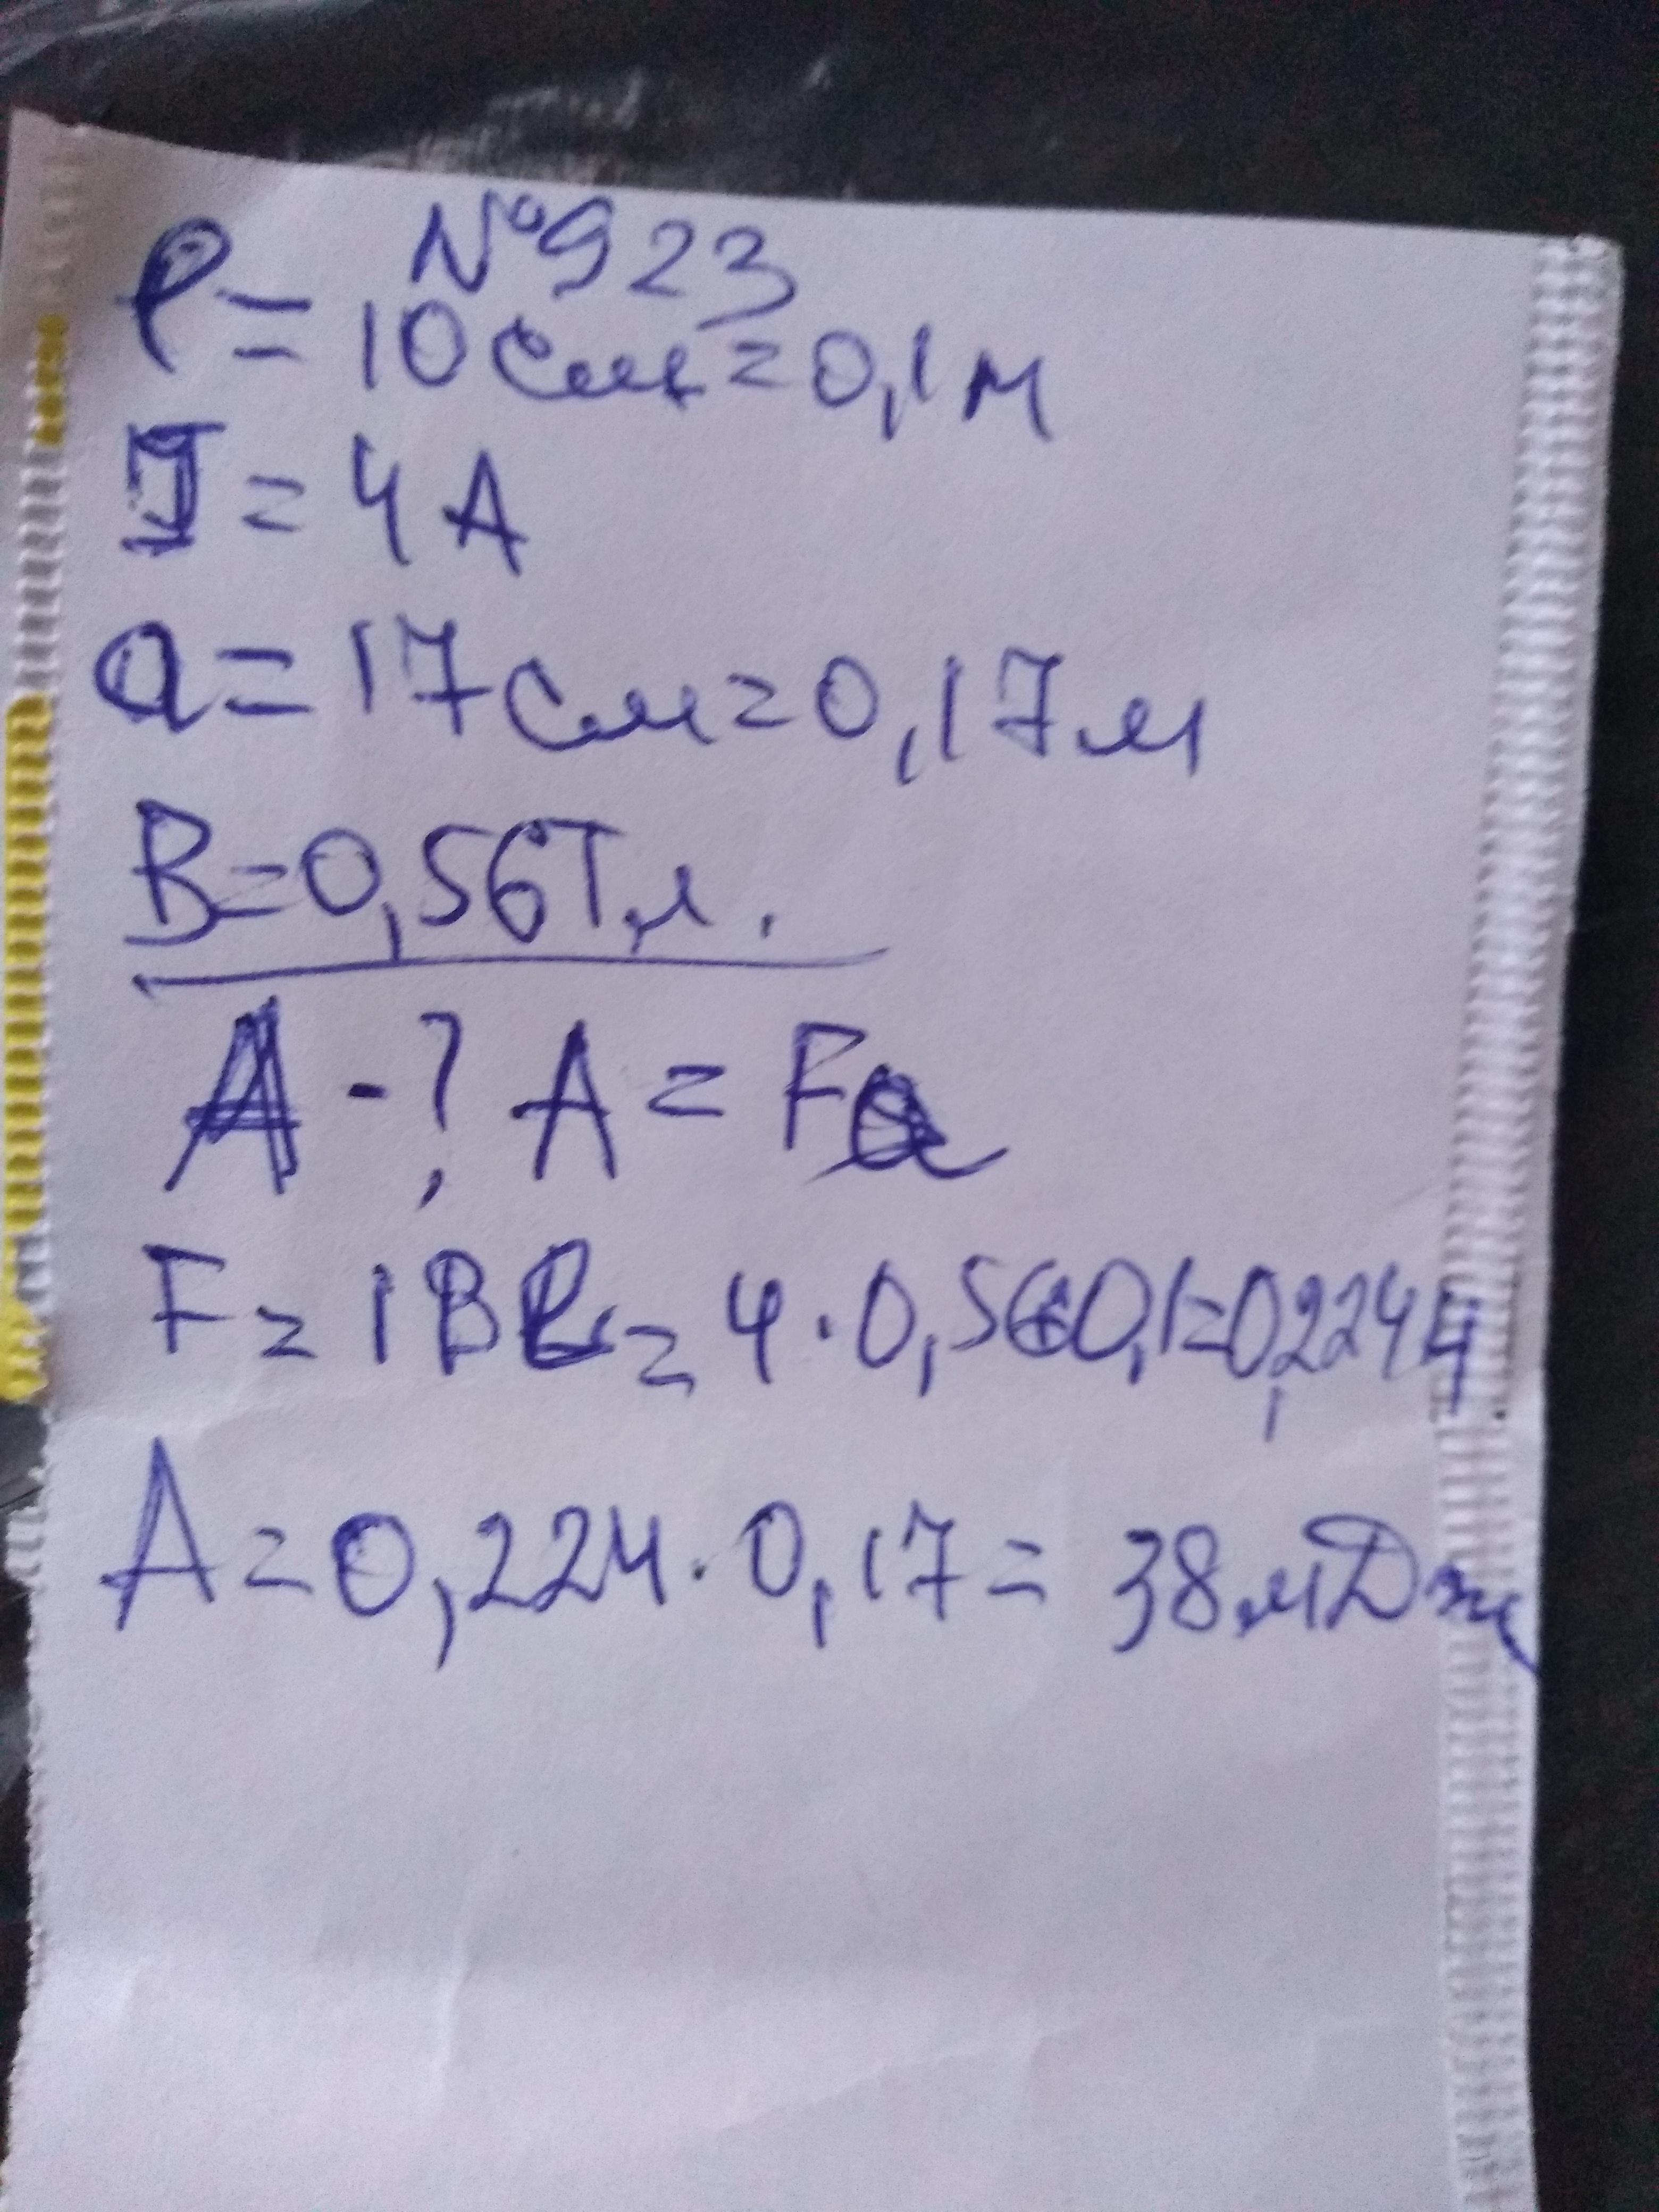 №923
l = 10 см = 0,1 м
I = 4 А
a = 17 см = 0,17 м
B = 0,56 Тл.
A - ? A = Fa
F = IBl = 4 · 0,56·0,1=0,224 Н
A = 0,224 · 0,17 = 38 мДж